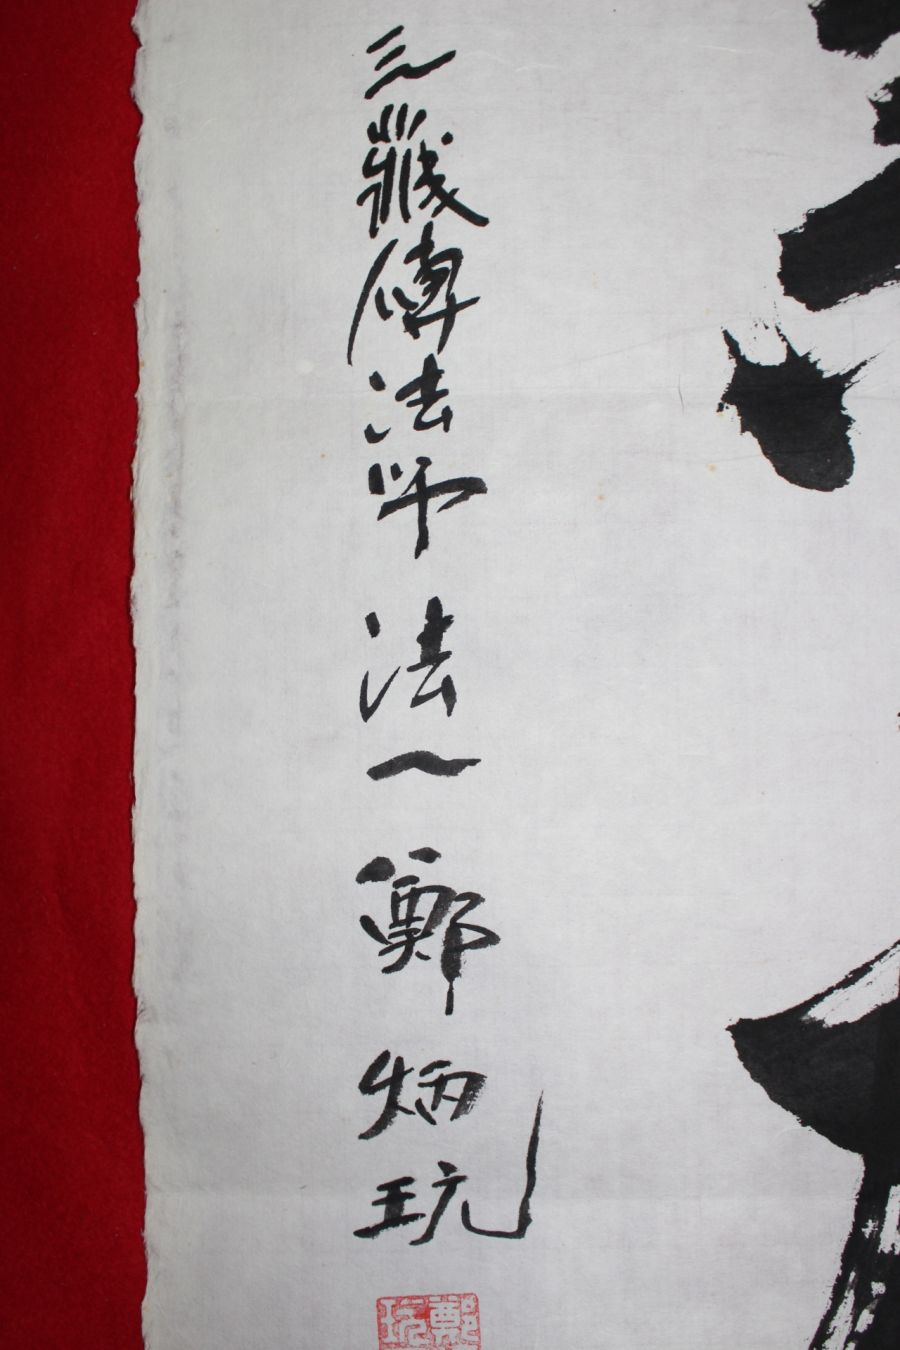 三藏傳法師 法一 鄭炳玩
鄭玩